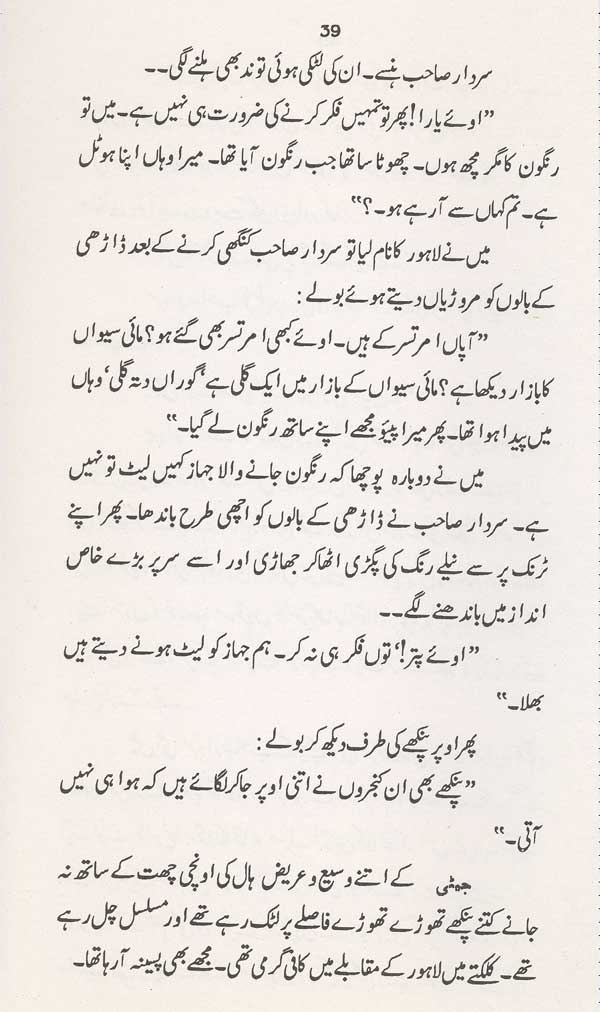 39
سردار صاحب ہنسے۔ ان کی لٹکی ہوئی توند بھی ہلنے لگی۔۔
”اوئے یارا! پھر تو تمہیں فکر کرنے کی ضرورت ہی نہیں ہے۔ میں تو
رنگون کا مگر مچھ ہوں۔ چھوٹا سا تھا جب رنگون آیا تھا۔ میرا وہاں اپنا ہوٹل
ہے۔ تم کہاں سے آ رہے ہو۔؟“
میں نے لاہور کا نام لیا تو سردار صاحب کنگھی کرنے کے بعد ڈاڑھی
کے بالوں کو مروڑیاں دیتے ہوئے بولے :
”آپاں امرتسر کے ہیں۔ اوئے کبھی امرتسر بھی گئے ہو؟ مائی سیواں
کا بازار دیکھا ہے؟ مائی سیواں کے بازار میں ایک گلی ہے ‘گوراں دتہ گلی’ وہاں
میں پیدا ہوا تھا۔ پھر میرا پیئو مجھے اپنے ساتھ رنگون لے گیا۔“
میں نے دوبارہ پوچھا کہ رنگون جانے والا جہاز کہیں لیٹ تو نہیں
ہے۔ سردار صاحب نے ڈاڑھی کے بالوں کو اچھی طرح باندھا۔ پھر اپنے
ٹرنک پر سے نیلے رنگ کی پگڑی اٹھا کر جھاڑی اور اسے سر پر بڑے خاص
انداز میں باندھنے لگے۔۔
”اوئے پتر!‘ توں فکر ہی نہ کر۔ ہم جہاز کو لیٹ ہونے دیتے ہیں
بھلا۔“
پھر اوپر پنکھے کی طرف دیکھ کر بولے :
”پنکھے بھی ان کنجروں نے اتنی اوپر جا کر لگائے ہیں کہ ہوا ہی نہیں
آتی۔“
جیٹی کے اتنے وسیع و عریض ہال کی اونچی چھت کے ساتھ نہ
جانے کتنے پنکھے تھوڑے تھوڑے فاصلے پر لٹک رہے تھے اور مسلسل چل رہے
تھے۔ کلکتے میں لاہور کے مقابلے میں کافی گرمی تھی۔ مجھے بھی پسینہ آ رہا تھا۔